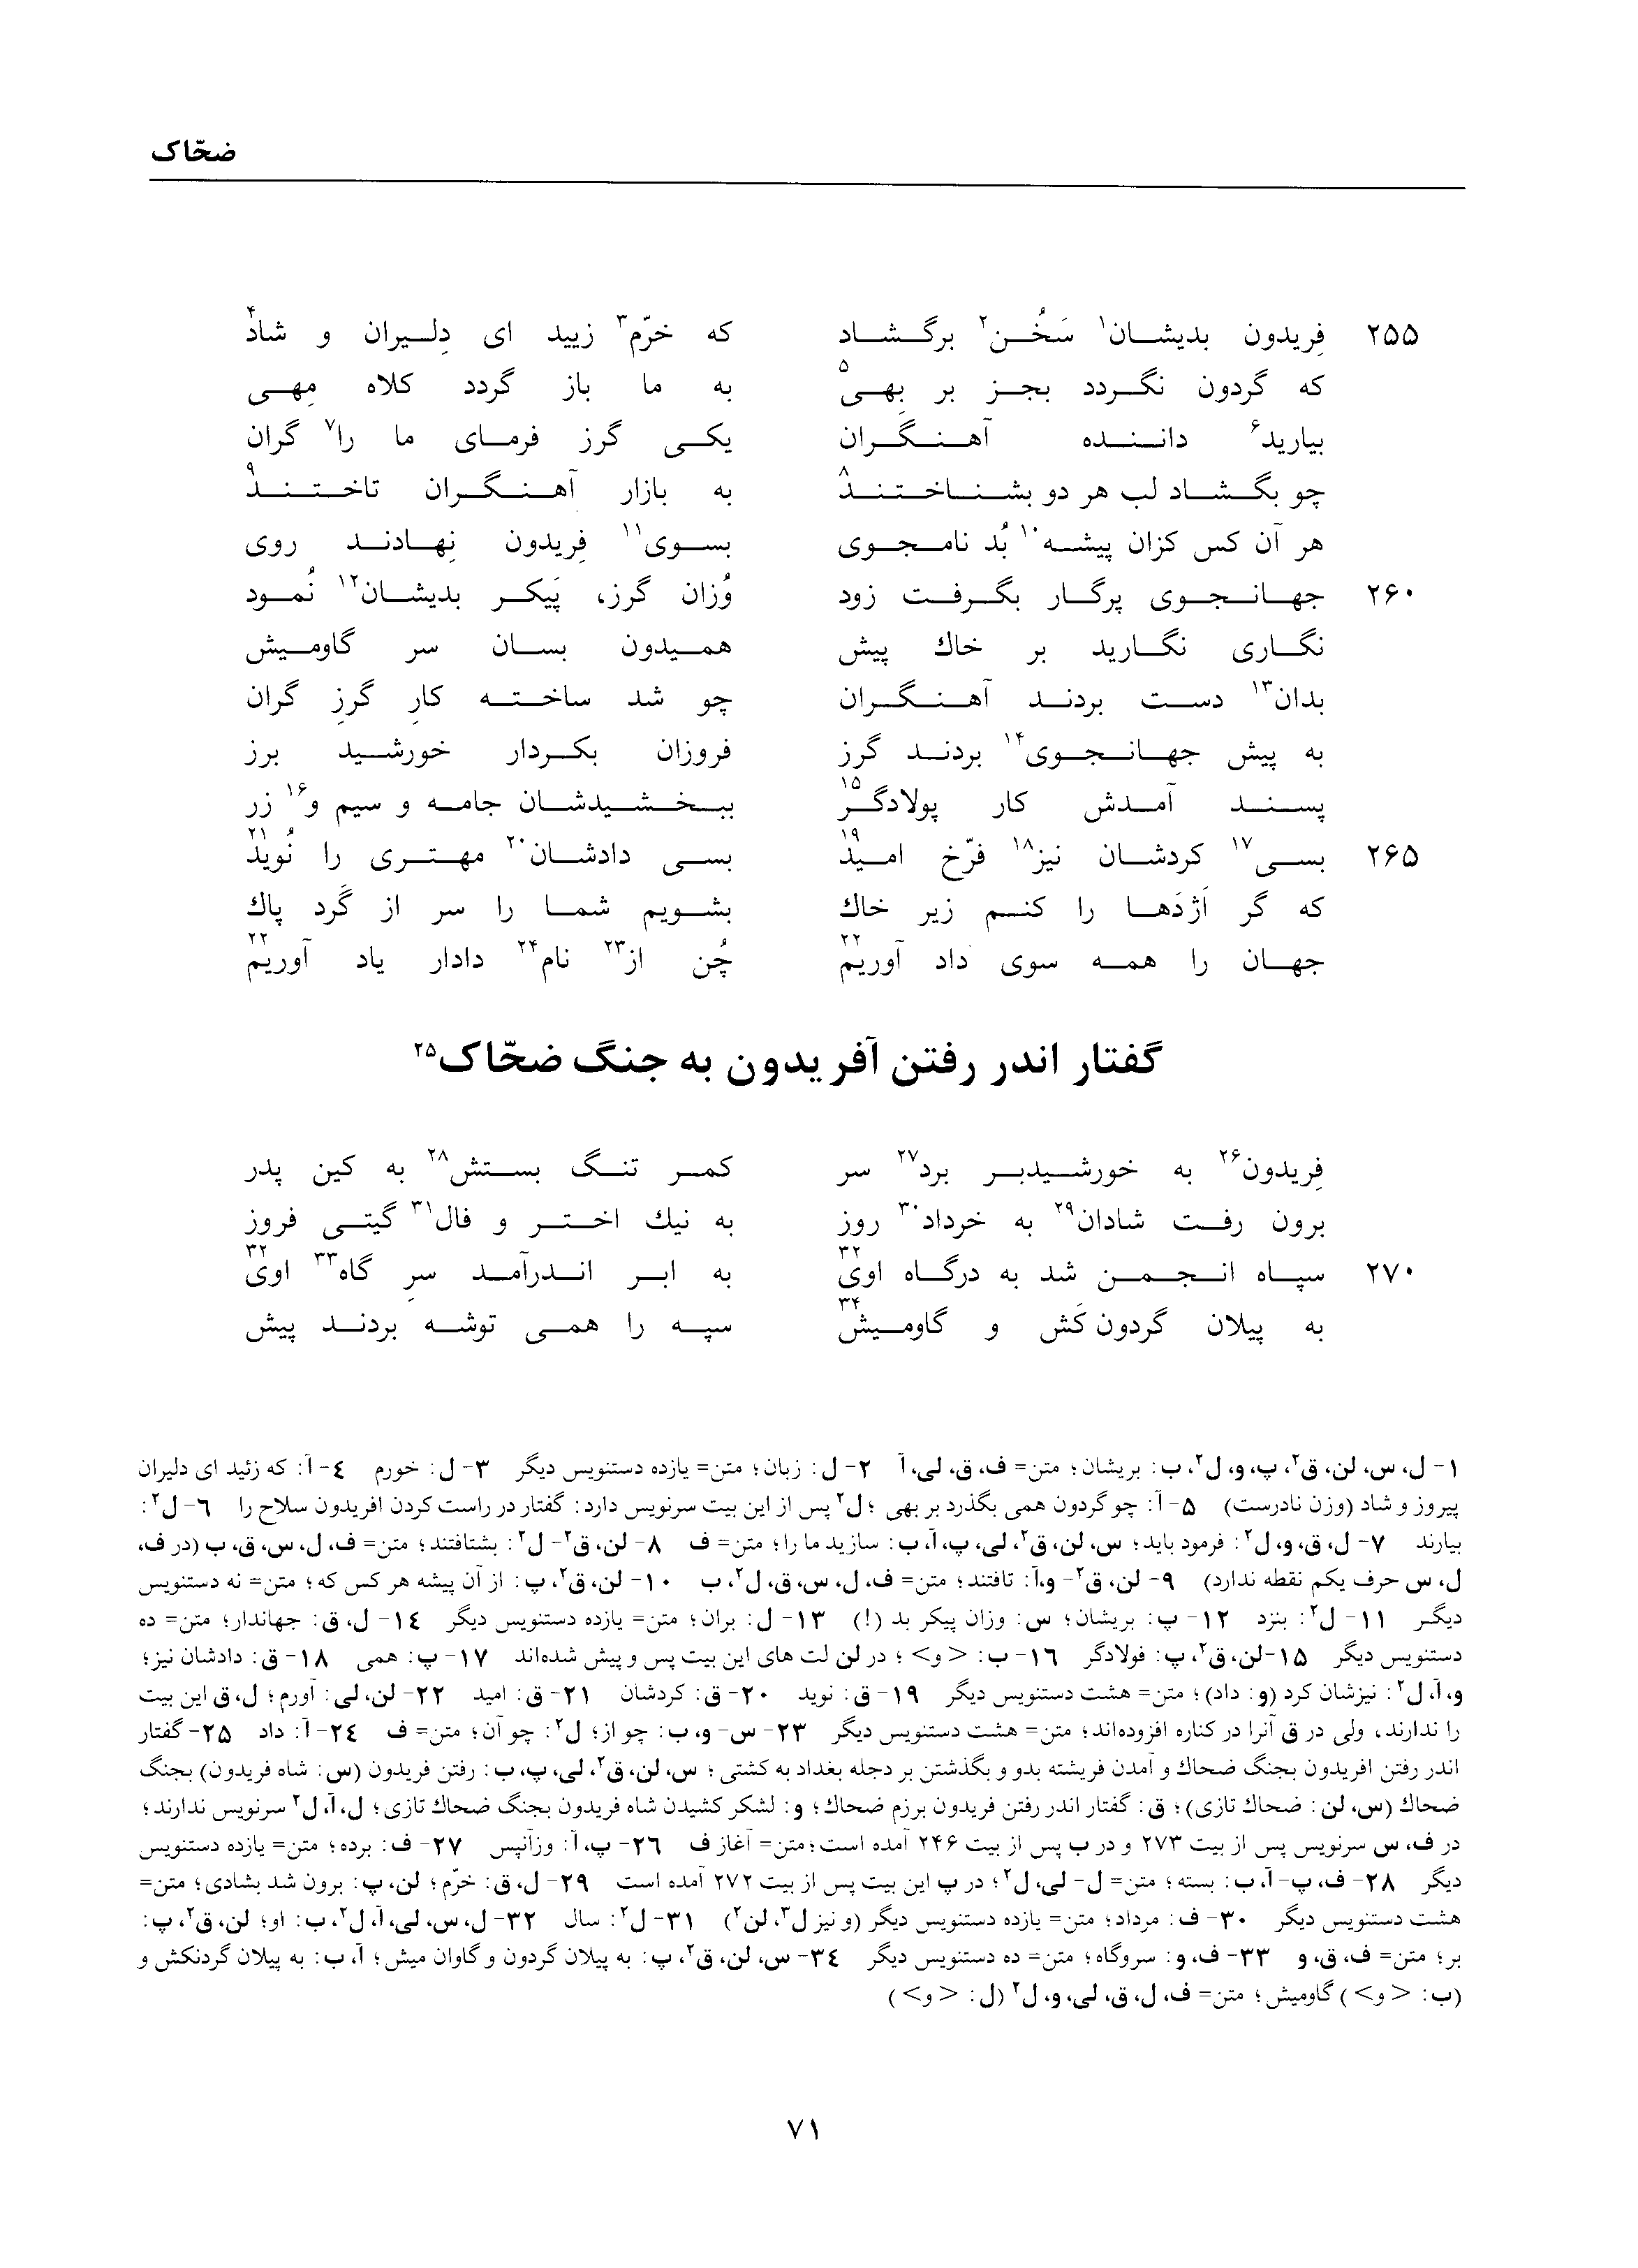 ضحّاک
۲۵۵ فِریدون بدیشان۱ سَخُن۲ برگشاد که خرّم۳ زیید ای دِلیران و شاد۴
که گردون نگردد بجز بر بِهی۵ به ما باز گردد کلاه مِهی
بیارید۶ داننده آهنگَران یکی گرز فرمای ما را۷ گران
چو بگشاد لب هر دو بشناختند۸ به بازار آهنگران تاختند۹
هر آن کس کزان پیشه۱۰ بُد نامجوی بسوی۱۱ فِریدون نِهادند روی
۲۶۰ جهانجوی پرگار بگرفت زود وُزان گرز، پَیکر بدیشان۱۲ نُمود
نگاری نگارید بر خاك پیش همیدون بسان سر گاومیش
بدان۱۳ دست بردند آهنگران چو شد ساخته کارِ گرزِ گران
به پیش جهانجوی۱۴ بردند گرز فروزان بکردار خورشید برز
پسند آمدش کار پولادگر۱۵ ببخشیدشان جامه و سیم و۱۶ زر
۲۶۵ بسی۱۷ کردشان نیز۱۸ فرّخ امید۱۹ بسی دادشان۲۰ مهتری را نُوید۲۱
که گر اَژدَها را کنم زیر خاك بشویم شما را سر از گَرد پاك
جهان را همه سوی داد آوریم۲۲ چُن از۲۳ نام۲۴ دادار یاد آوریم۲۲
گفتار اندر رفتن آفریدون به جنگ ضحّاک۲۵
فِریدون۲۶ به خورشیدبر برد۲۷ سر کمر تنگ بستش۲۸ به کین پدر
برون رفت شادان۲۹ به خرداد۳۰ روز به نیك اختر و فال۳۱ گیتی فروز
۲۷۰ سپاه انجمن شد به درگاه اوی۳۲ به ابر اندرآمد سرِ گاه۳۳ اوی۳۲
به پیلان گردون کَش و گاومیش۳۴ سپه را همی توشه بردند پیش
۱- ل، س، لن، ق۲، پ، و، ل۲، ب: بریشان؛ متن= ف، ق، لی، آ ۲- ل: زبان؛ متن= یازده دستنویس دیگر ۳- ل: خورم ٤- آ: که زئید ای دلیران
پیروز و شاد (وزن نادرست) ۵- آ: چو گردون همی بگذرد بر بهی؛ ل۲ پس از این بیت سرنویس دارد: گفتار در راست کردن افریدون سلاح را ٦- ل۲:
بیارند ۷- ل، ق، و، ل۲: فرمود باید؛ س، لن، ق۲، لی، پ، آ، ب: سازید ما را؛ متن= ف ۸- لن، ق۲- ل۲: بشتافتند؛ متن= ف، ل، س، ق، ب (در ف،
ل، س حرف یکم نقطه ندارد) ۹- لن، ق۲- و،آ: تافتند؛ متن= ف، ل، س، ق، ل۲، ب ۱۰- لن، ق۲، پ: از آن پیشه هر کس که؛ متن= نه دستنویس
دیگر ۱۱- ل۲: بنزد ۱۲- پ: بریشان؛ س: وزان پیکر بد (!) ۱۳- ل: بران؛ متن= یازده دستنویس دیگر ۱٤- ل، ق: جهاندار؛ متن= ده
دستنویس دیگر ۱۵-لن، ق۲، پ: فولادگر ۱٦- ب: <و>؛ در لن لت های این بیت پس و پیش شده‌اند ۱۷- پ: همی ۱۸- ق: دادشان نیز؛
و، آ، ل۲: نیزشان کرد (و: داد)؛ متن= هشت دستنویس دیگر ۱۹- ق: نوید ۲۰- ق: کردشان ۲۱- ق: امید ۲۲- لن، لی: آورم؛ ل، ق این بیت
را ندارند، ولی در ق آنرا در کناره افزوده‌اند؛ متن= هشت دستنویس دیگر ۲۳- س- و، ب: چو از؛ ل۲: چو آن؛ متن= ف ۲٤- آ: داد ۲۵- گفتار
اندر رفتن افریدون بجنگ ضحاك و آمدن فریشته بدو و بگذشتن بر دجله بغداد به کشتی؛ س، لن، ق۲، لی، پ، ب: رفتن فریدون (س: شاه فریدون) بجنگ
ضحاك (س، لن: ضحاك تازی)؛ ق: گفتار اندر رفتن فریدون برزم ضحاك؛ و: لشکر کشیدن شاه فریدون بجنگ ضحاك تازی؛ ل، آ، ل۲ سرنویس ندارند؛
در ف، س سرنویس پس از بیت ۲۷۳ و در ب پس از بیت ۲۴۶ آمده است؛ متن= آغاز ف ۲٦- پ، آ: وزآنپس ۲۷- ف: برده؛ متن= یازده دستنویس
دیگر ۲۸- ف، پ- آ، ب: بسته؛ متن= ل- لی، ل۲؛ در پ این بیت پس از بیت ۲۷۲ آمده است ۲۹- ل، ق: خرّم؛ لن، پ: برون شد بشادی؛ متن=
هشت دستنویس دیگر ۳۰- ف: مرداد؛ متن= یازده دستنویس دیگر (و نیز ل۳، لن۲) ۳۱- ل۲: سال ۳۲- ل، س، لی، آ، ل۲، ب: او؛ لن، ق۲، پ:
بر؛ متن= ف، ق، و ۳۳- ف، و: سروگاه؛ متن= ده دستنویس دیگر ۳٤- س، لن، ق۲، پ: به پیلان گردون و گاوان میش؛ آ، ب: به پیلان گردنکش و
(ب: <و>) گاومیش؛ متن= ف، ل، ق، لی، و، ل۲ (ل: <و>)
۷۱